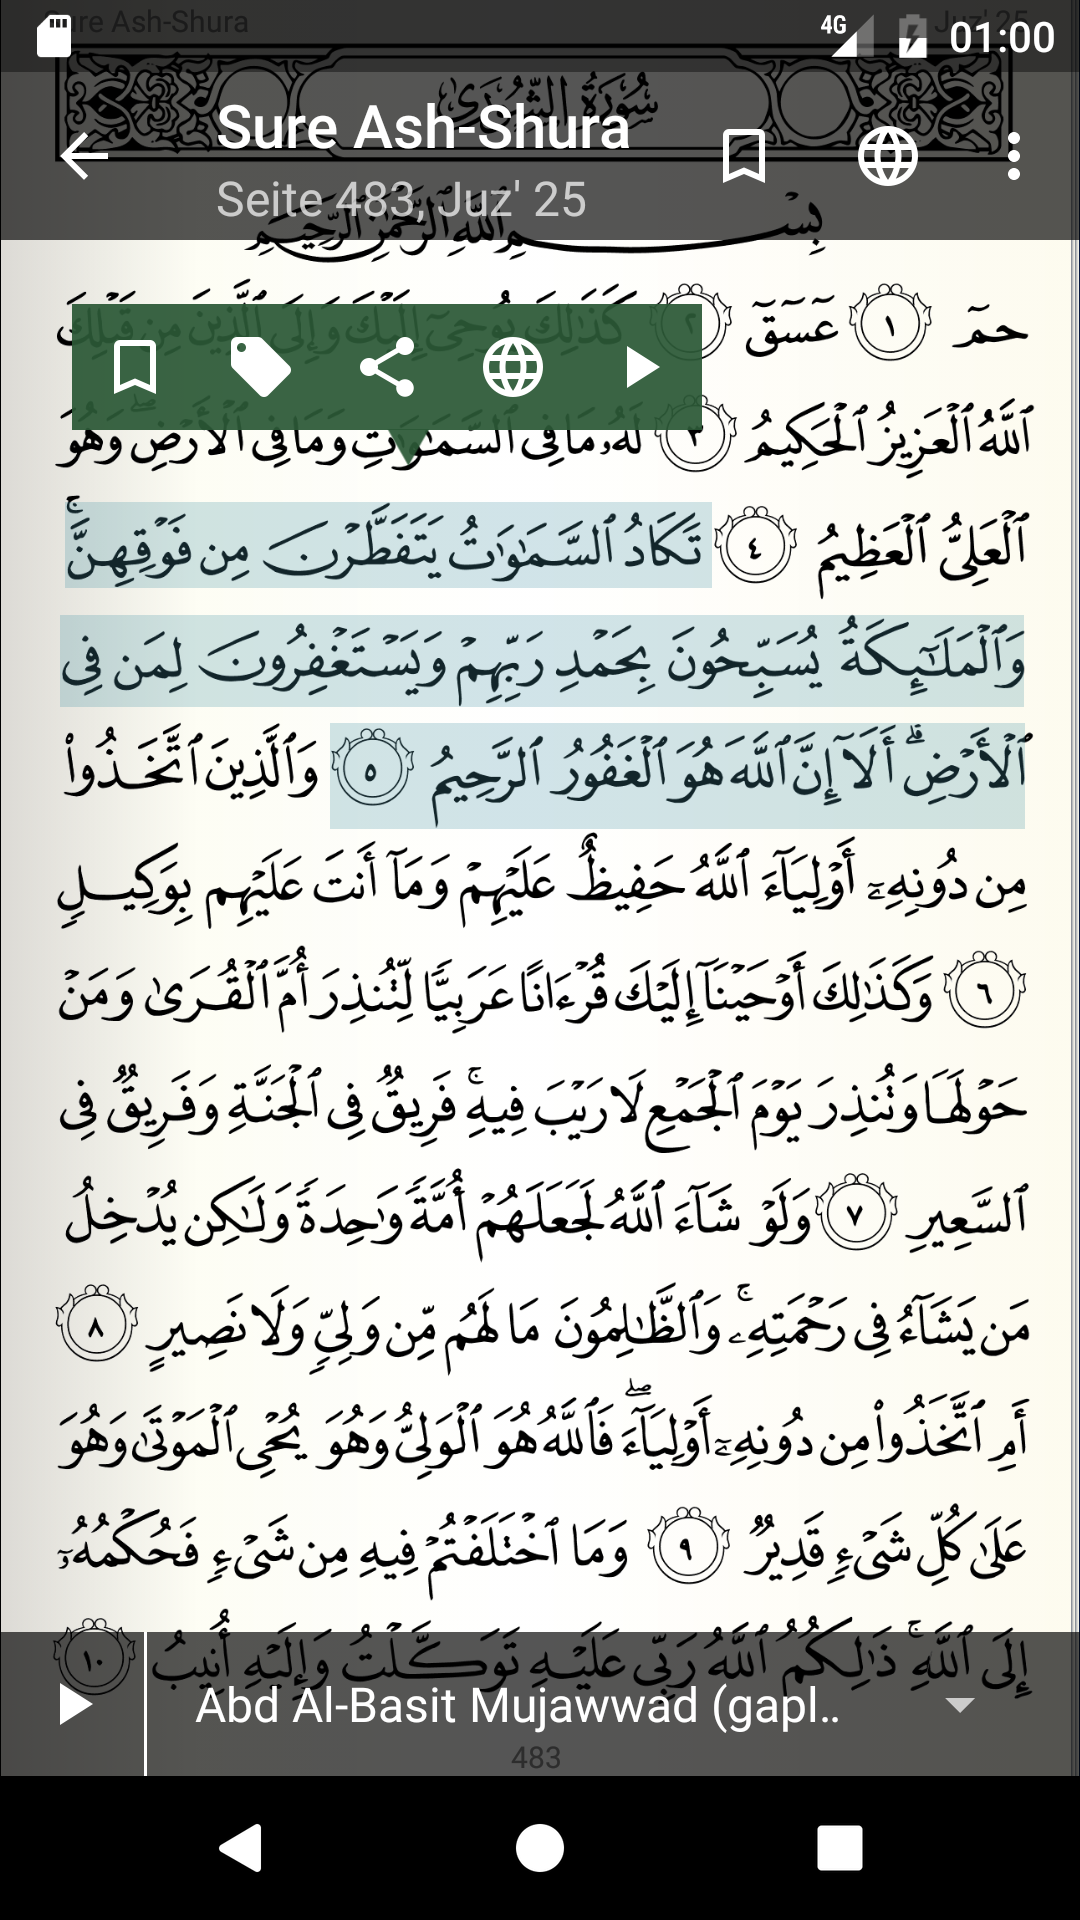 Sure Ash-Shura
Juz' 25
01:00
4G
سُورَةُ الشُّورَىٰ
Sure Ash-Shura
Seite 483, Juz' 25
بِسْمِ ٱللَّهِ ٱلرَّحْمَٰنِ ٱلرَّحِيمِ
حمٓ ١ عٓسٓقٓ ٢ كَذَٰلِكَ يُوحِىٓ إِلَيْكَ وَإِلَى ٱلَّذِينَ مِن قَبْلِكَ
ٱللَّهُ ٱلْعَزِيزُ ٱلْحَكِيمُ ٣ لَهُۥ مَا فِى ٱلسَّمَٰوَٰتِ وَمَا فِى ٱلْأَرْضِ ۖ وَهُوَ
ٱلْعَلِىُّ ٱلْعَظِيمُ ٤ تَكَادُ ٱلسَّمَٰوَٰتُ يَتَفَطَّرْنَ مِن فَوْقِهِنَّ ۚ
وَٱلْمَلَٰٓئِكَةُ يُسَبِّحُونَ بِحَمْدِ رَبِّهِمْ وَيَسْتَغْفِرُونَ لِمَن فِى
ٱلْأَرْضِ ۗ أَلَآ إِنَّ ٱللَّهَ هُوَ ٱلْغَفُورُ ٱلرَّحِيمُ ٥ وَٱلَّذِينَ ٱتَّخَذُوا۟
مِن دُونِهِۦٓ أَوْلِيَآءَ ٱللَّهُ حَفِيظٌ عَلَيْهِمْ وَمَآ أَنتَ عَلَيْهِم بِوَكِيلٍ
٦ وَكَذَٰلِكَ أَوْحَيْنَآ إِلَيْكَ قُرْءَانًا عَرَبِيًّا لِّتُنذِرَ أُمَّ ٱلْقُرَىٰ وَمَنْ
حَوْلَهَا وَتُنذِرَ يَوْمَ ٱلْجَمْعِ لَا رَيْبَ فِيهِ ۚ فَرِيقٌ فِى ٱلْجَنَّةِ وَفَرِيقٌ فِى
ٱلسَّعِيرِ ٧ وَلَوْ شَآءَ ٱللَّهُ لَجَعَلَهُمْ أُمَّةً وَٰحِدَةً وَلَٰكِن يُدْخِلُ
مَن يَشَآءُ فِى رَحْمَتِهِۦ ۚ وَٱلظَّٰلِمُونَ مَا لَهُم مِّن وَلِىٍّ وَلَا نَصِيرٍ ٨
أَمِ ٱتَّخَذُوا۟ مِن دُونِهِۦٓ أَوْلِيَآءَ ۖ فَٱللَّهُ هُوَ ٱلْوَلِىُّ وَهُوَ يُحْىِ ٱلْمَوْتَىٰ وَهُوَ
عَلَىٰ كُلِّ شَىْءٍ قَدِيرٌ ٩ وَمَا ٱخْتَلَفْتُمْ فِيهِ مِن شَىْءٍ فَحُكْمُهُۥٓ
إِلَى ٱللَّهِ ۚ ذَٰلِكُمُ ٱللَّهُ رَبِّى عَلَيْهِ تَوَكَّلْتُ وَإِلَيْهِ أُنِيبُ ١٠
Abd Al-Basit Mujawwad (gapl..
483